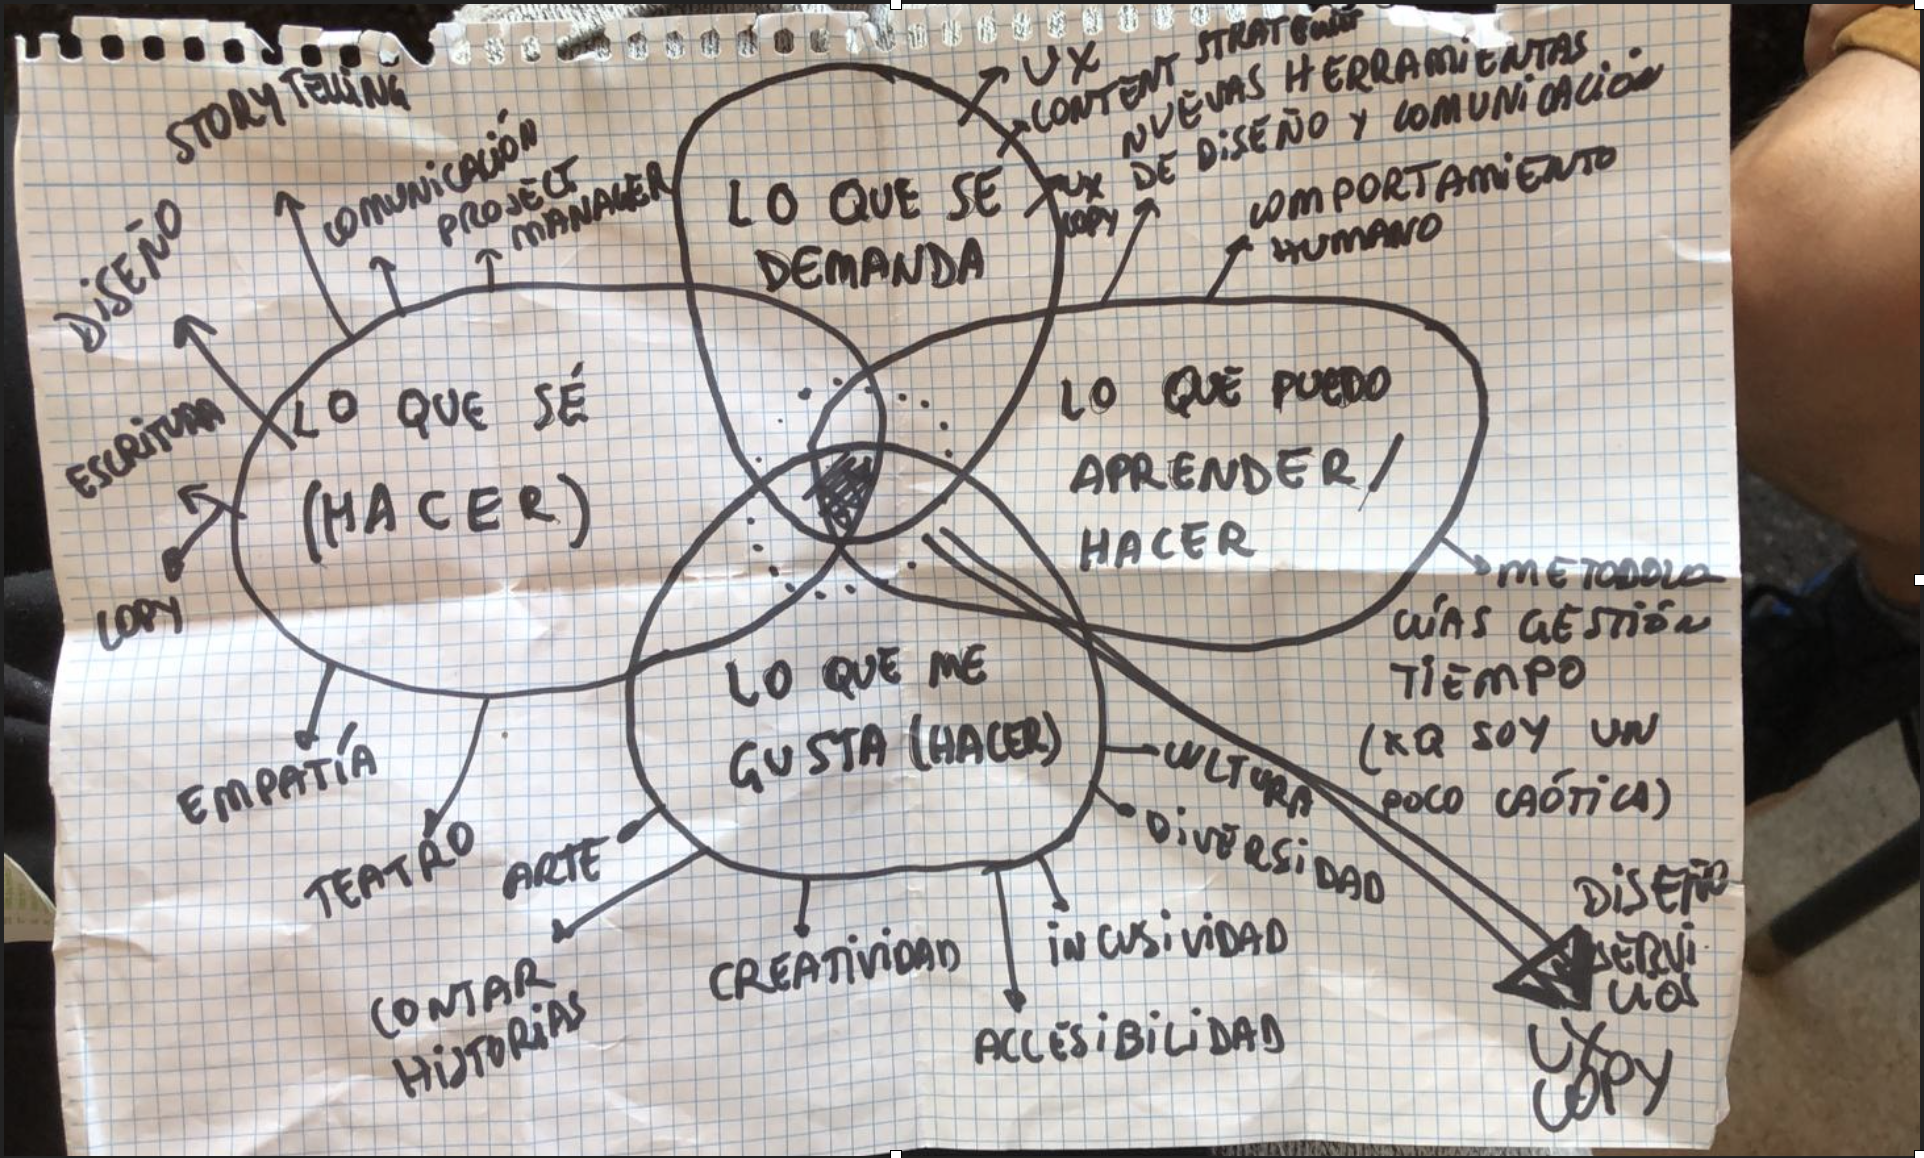 STORYTELLING
COMUNICACIÓN
PROJECT
MANAGER
DISEÑO
ESCRITURA
COPY
LO QUE SÉ
(HACER)
EMPATÍA
TEATRO
LO QUE SE
DEMANDA
UX
CONTENT STRATEGIST
UX
COPY
NUEVAS HERRAMIENTAS
DE DISEÑO Y COMUNICACIÓN
COMPORTAMIENTO
HUMANO
LO QUE PUEDO
APRENDER/
HACER
METODOLO
GÍAS GESTIÓN
TIEMPO
(XQ SOY UN
POCO CAÓTICA)
LO QUE ME
GUSTA (HACER)
ARTE
CONTAR
HISTORIAS
CREATIVIDAD
ACCESIBILIDAD
INCUSIVIDAD
DIVERSIDAD
CULTURA
DISEÑO
SERVI
CIOS
UX
COPY